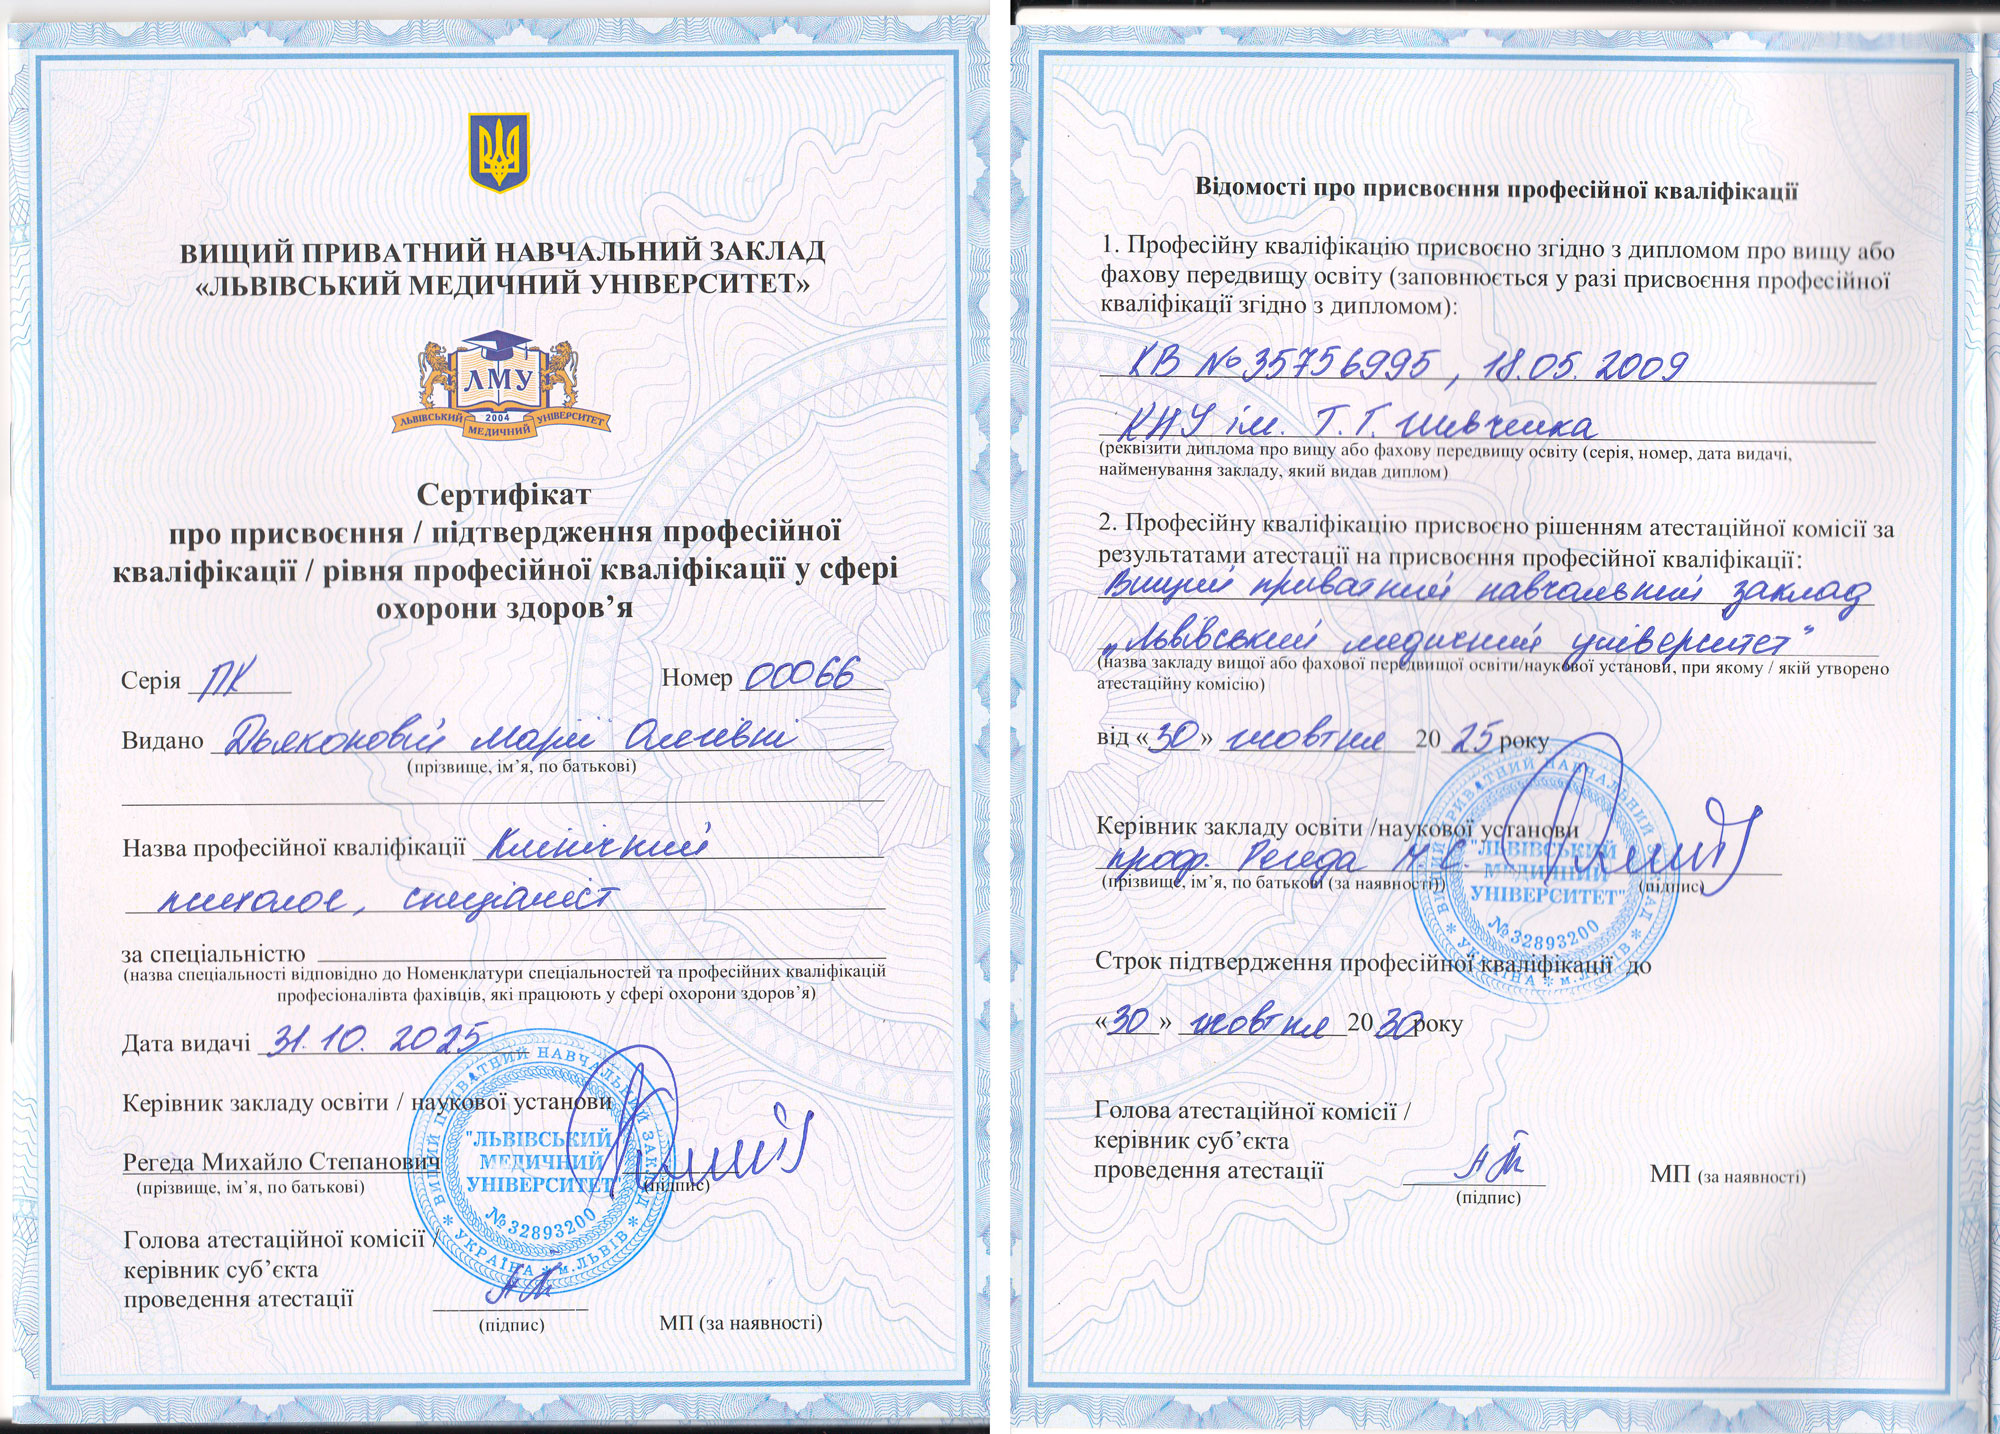 ВИЩИЙ ПРИВАТНИЙ НАВЧАЛЬНИЙ ЗАКЛАД
«ЛЬВІВСЬКИЙ МЕДИЧНИЙ УНІВЕРСИТЕТ»
ЛМУ
2004
ЛЬВІВСЬКИЙ МЕДИЧНИЙ УНІВЕРСИТЕТ
Сертифікат
про присвоєння / підтвердження професійної
кваліфікації / рівня професійної кваліфікації у сфері
охорони здоров’я
Серія ПК Номер 00066
Видано Дьяконовій Марії Олегівні
(прізвище, ім’я, по батькові)
Назва професійної кваліфікації Клінічний
психолог, спеціаліст
за спеціальністю
(назва спеціальності відповідно до Номенклатури спеціальностей та професійних кваліфікацій
професіоналівта фахівців, які працюють у сфері охорони здоров’я)
Дата видачі 31.10.2025
Керівник закладу освіти / наукової установи
Регеда Михайло Степанович
(прізвище, ім’я, по батькові) (підпис)
ВИЩИЙ ПРИВАТНИЙ НАВЧАЛЬНИЙ ЗАКЛАД
"ЛЬВІВСЬКИЙ
МЕДИЧНИЙ
УНІВЕРСИТЕТ"
№32893200
* УКРАЇНА * м.ЛЬВІВ *
Голова атестаційної комісії /
керівник суб’єкта
проведення атестації
(підпис) МП (за наявності)
Відомості про присвоєння професійної кваліфікації
1. Професійну кваліфікацію присвоєно згідно з дипломом про вищу або
фахову передвищу освіту (заповнюється у разі присвоєння професійної
кваліфікації згідно з дипломом):
КВ №35756995, 18.05.2009
КНУ ім. Т.Г. Шевченка
(реквізити диплома про вищу або фахову передвищу освіту (серія, номер, дата видачі,
найменування закладу, який видав диплом)
2. Професійну кваліфікацію присвоєно рішенням атестаційної комісії за
результатами атестації на присвоєння професійної кваліфікації:
Вищий приватний навчальний заклад
„Львівський медичний університет"
(назва закладу вищої або фахової передвищої освіти/наукової установи, при якому / якій утворено
атестаційну комісію)
від «30» жовтня 2025 року
Керівник закладу освіти /наукової установи
проф. Регеда М.С.
(прізвище, ім’я, по батькові (за наявності)) (підпис)
ВИЩИЙ ПРИВАТНИЙ НАВЧАЛЬНИЙ ЗАКЛАД
"ЛЬВІВСЬКИЙ
МЕДИЧНИЙ
УНІВЕРСИТЕТ"
№32893200
* УКРАЇНА * м.ЛЬВІВ *
Строк підтвердження професійної кваліфікації до
«30» жовтня 2030 року
Голова атестаційної комісії /
керівник суб’єкта
проведення атестації
(підпис) МП (за наявності)